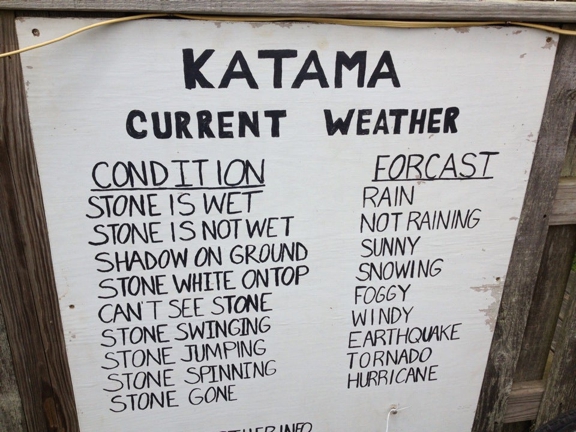 KATAMA
CURRENT WEATHER
CONDITION FORCAST
STONE IS WET RAIN
STONE IS NOT WET NOT RAINING
SHADOW ON GROUND SUNNY
STONE WHITE ON TOP SNOWING
CAN'T SEE STONE FOGGY
STONE SWINGING WINDY
STONE JUMPING EARTHQUAKE
STONE SPINNING TORNADO
STONE GONE HURRICANE
INFO